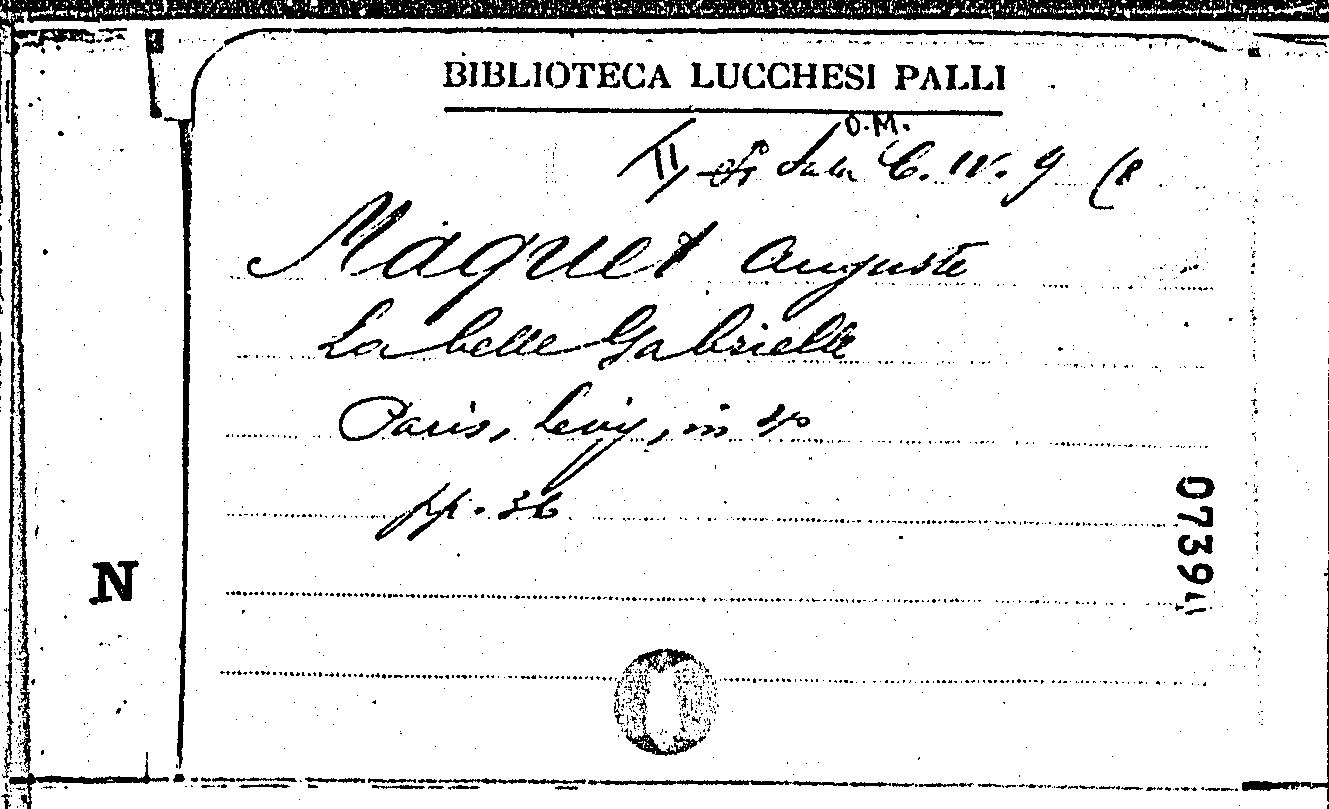 BIBLIOTECA LUCCHESI PALLI
O.M.
II Sala C. IV. 9 (8
Maquet Auguste
La belle Gabrielle
Paris, Levy, in 4º
pp. 36
0739
N